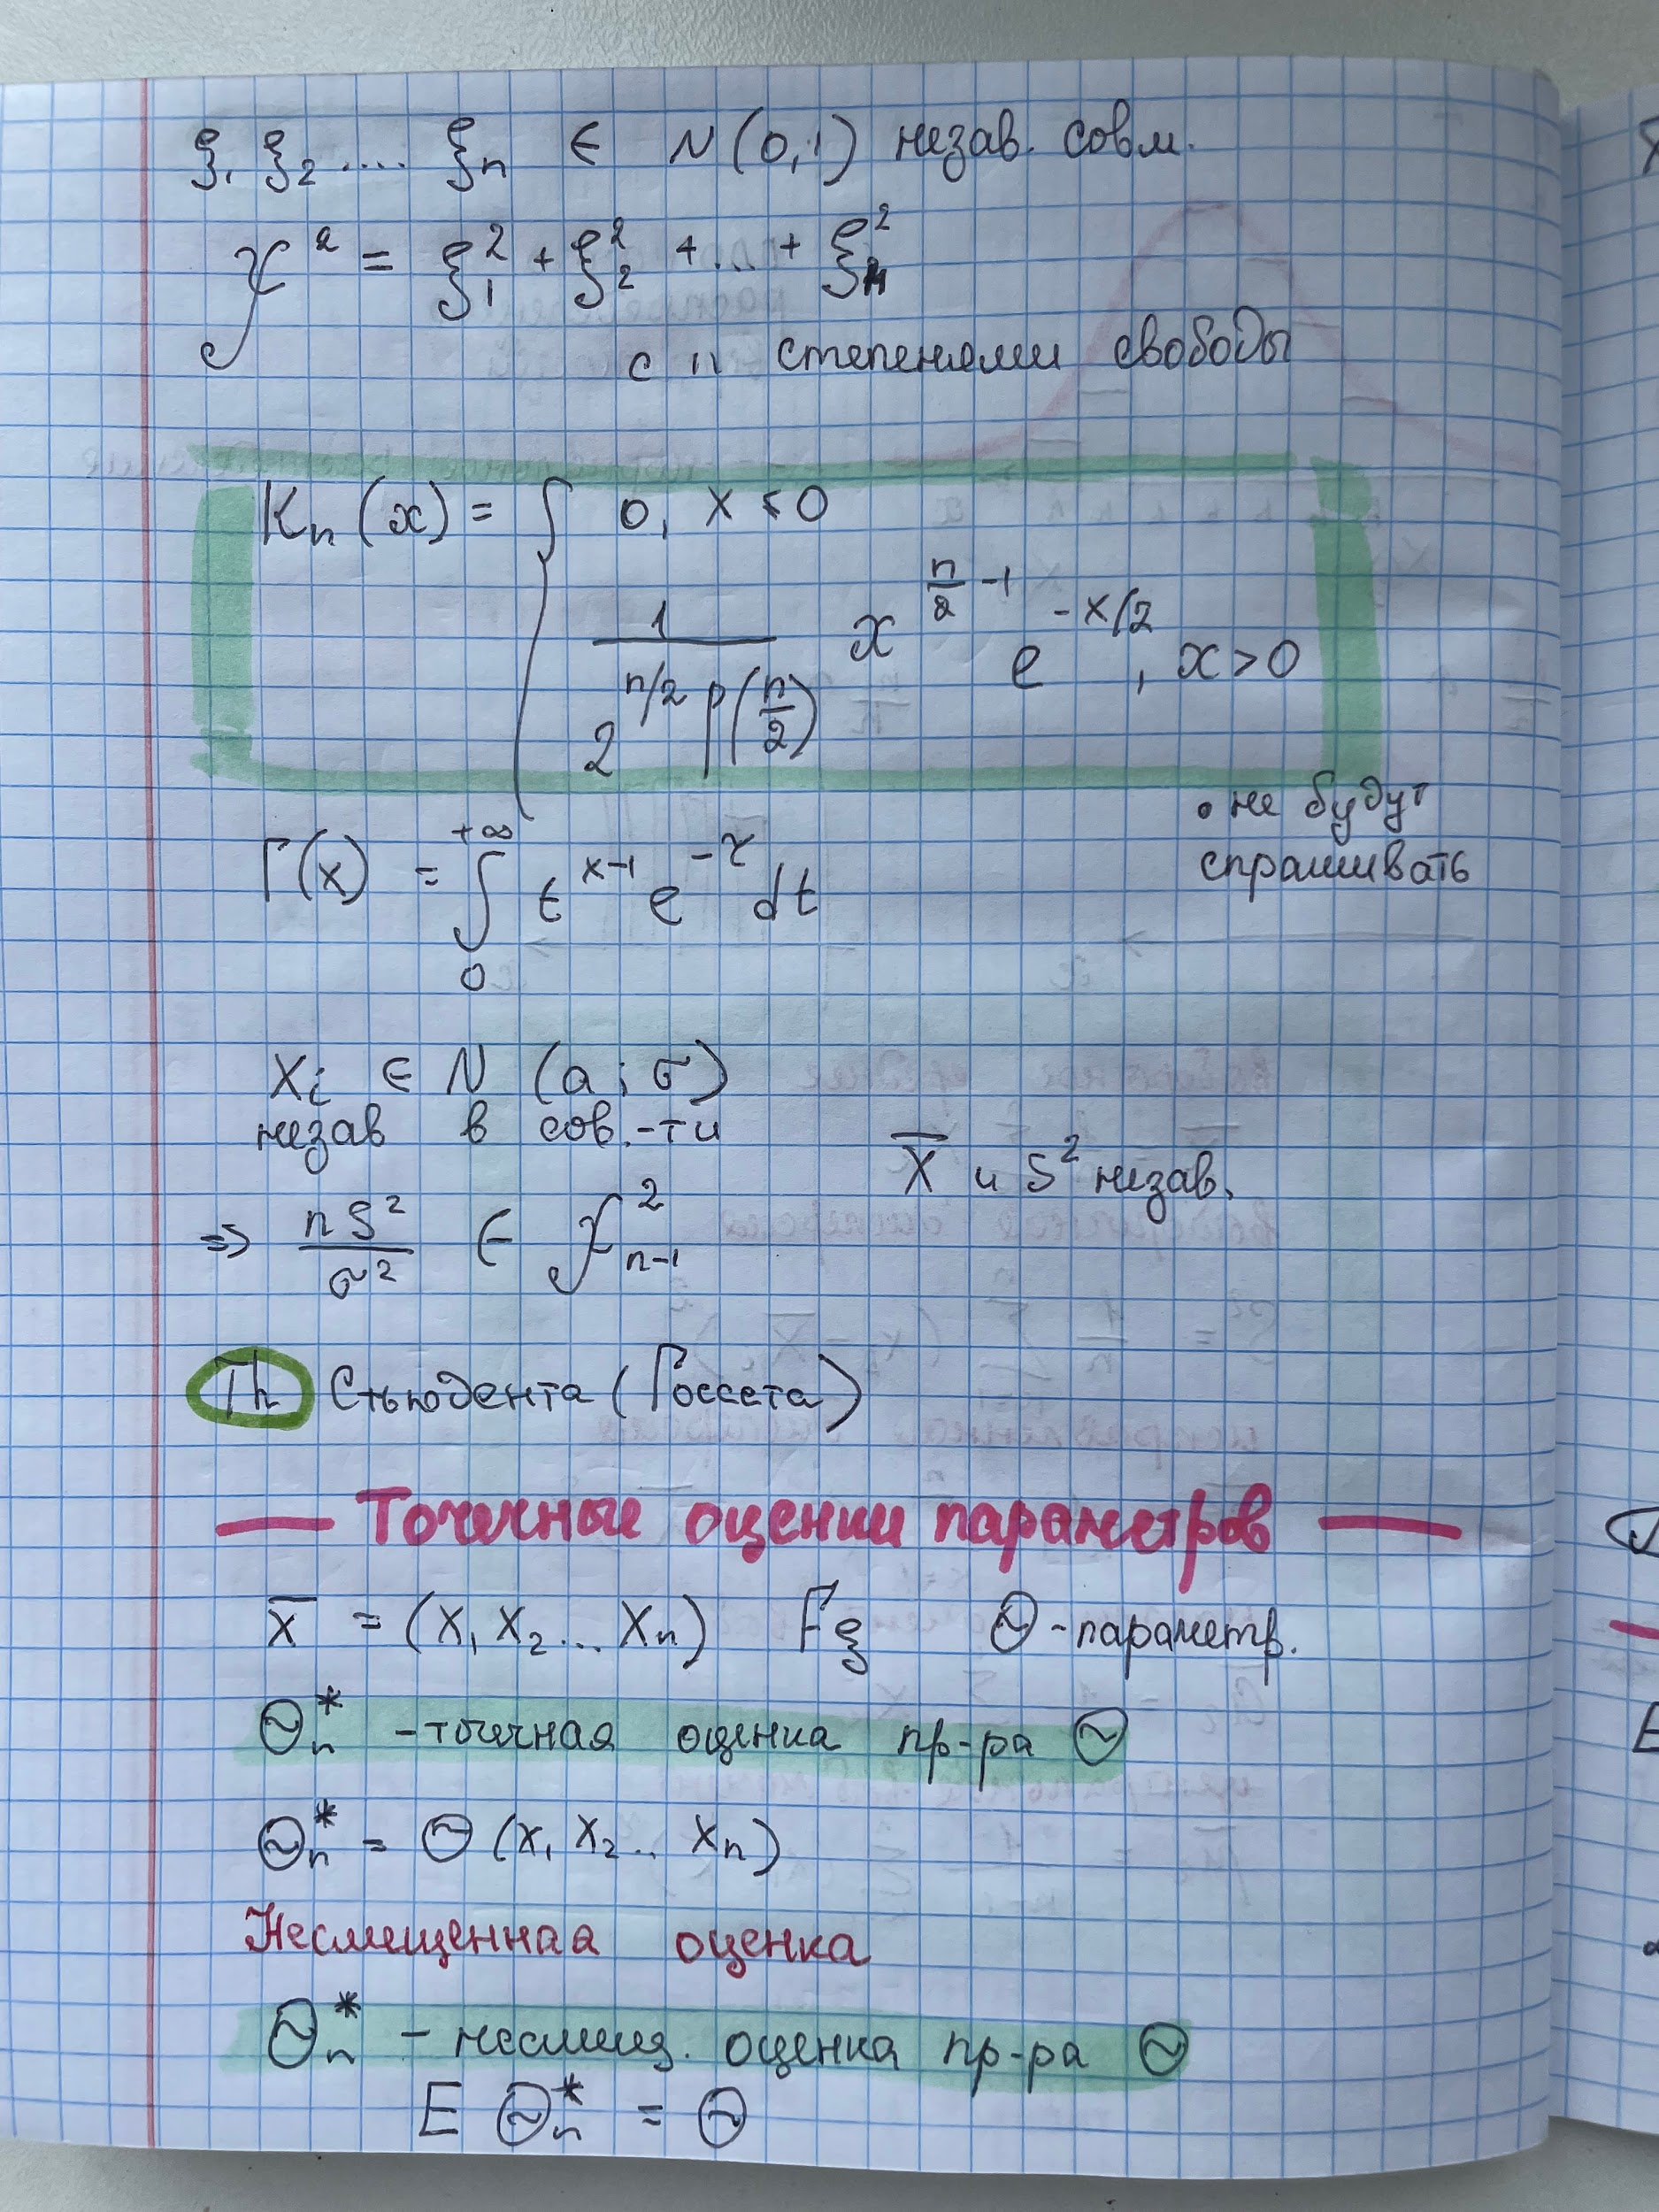 ξ₁ ξ₂ .... ξₙ ∈ N(0,1) незав. совм.
χ² = ξ₁² + ξ₂² + ... + ξₙ²
с n степенями свободы
Kₙ(x) = { 0, x ≤ 0
1/(2^(n/2) Γ(n/2)) x^(n/2 -1) e^(-x/2), x > 0
• не будут
спрашивать
Γ(x) = ∫₀^(+∞) t^(x-1) e^(-τ) dt
Xᵢ ∈ N (a; σ)
незав в сов.-ти
X̅ и S² незав.
=> nS²/σ² ∈ χ²ₙ₋₁
Th Стьюдента (Госсета)
— Точечные оценки параметров —
x̅ = (x₁ x₂ ... xₙ) F_ξ Θ -параметр.
Θₙ* - точечная оценка пр-ра Θ
Θₙ* = Θ (x₁ x₂ .. xₙ)
Несмещенная оценка
Θₙ* - несмещ. оценка пр-ра Θ
E Θₙ* = Θ